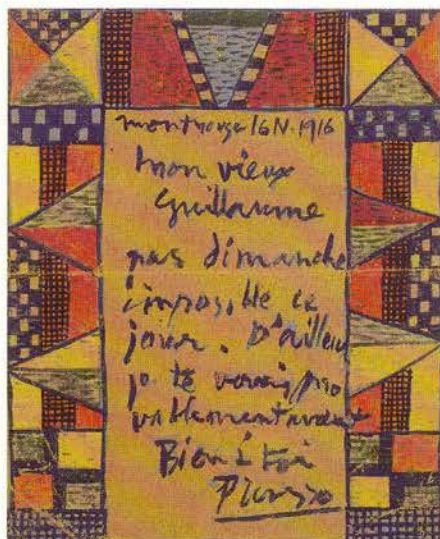 montrouge 16 N. 1916
mon vieux
Guillaume
pas dimanche
imposible ce
jour. D'ailleu
je te verrai pro
bablement avant
Bien à toi
Picasso